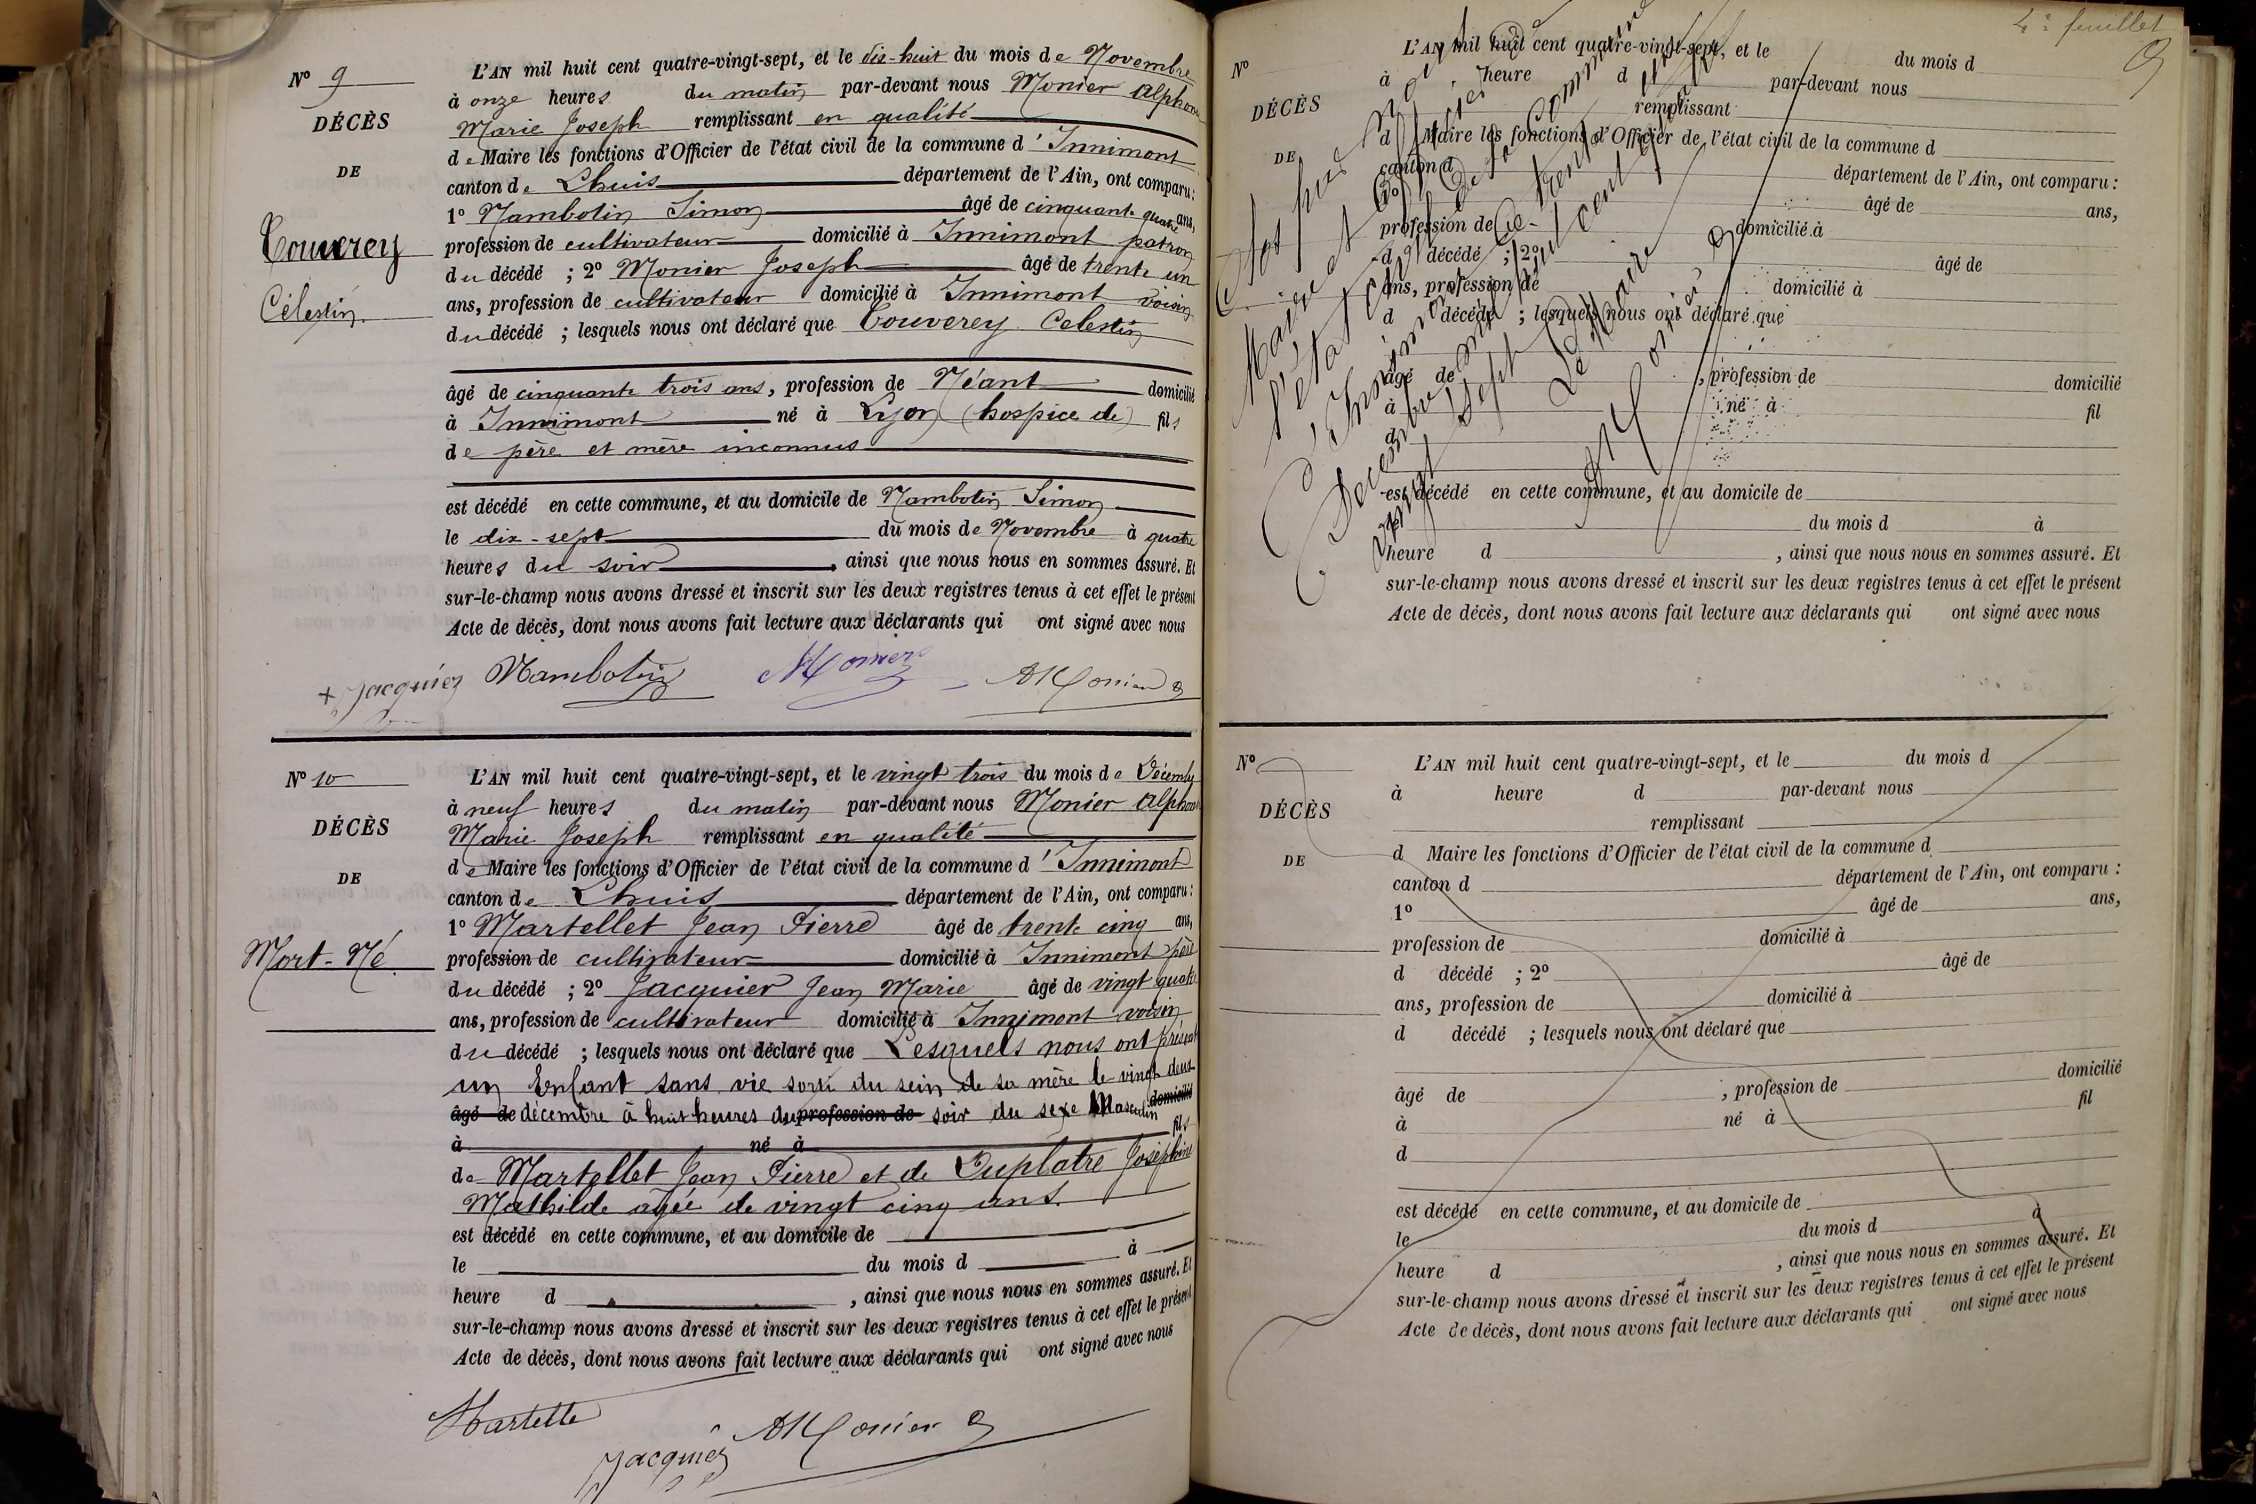 Nº 9
DÉCÈS
DE
Couverey
Célestin
L'AN mil huit cent quatre-vingt-sept, et le dix-huit du mois de Novembre
à onze heures du matin par-devant nous Monier Alphonse
Marie Joseph remplissant en qualité
de Maire les fonctions d'Officier de l'état civil de la commune d'Innimont
canton de Lhuis département de l'Ain, ont comparu:
1º Mambotin Simon âgé de cinquante quatre ans,
profession de cultivateur domicilié à Innimont patron
du décédé ; 2º Monier Joseph âgé de trente un
ans, profession de cultivateur domicilié à Innimont voisin
du décédé ; lesquels nous ont déclaré que Couverey Celestin
âgé de cinquante trois ans, profession de Néant domicilié
à Innimont né à Lyon (hospice de) fils
de père et mère inconnus
est décédé en cette commune, et au domicile de Mambotin Simon
le dix-sept du mois de Novembre à quatre
heures du soir, ainsi que nous nous en sommes assuré. Et
sur-le-champ nous avons dressé et inscrit sur les deux registres tenus à cet effet le présent
Acte de décès, dont nous avons fait lecture aux déclarants qui ont signé avec nous
+ Jacquier Mambotin Monier AMonier
Nº 10
DÉCÈS
DE
Mort-Né
L'AN mil huit cent quatre-vingt-sept, et le vingt trois du mois de Décemb
à neuf heures du matin par-devant nous Monier Alphonse
Marie Joseph remplissant en qualité
de Maire les fonctions d'Officier de l'état civil de la commune d'Innimont
canton de Lhuis département de l'Ain, ont comparu:
1º Martellet Jean Pierre âgé de trente cinq ans,
profession de cultivateur domicilié à Innimont père
du décédé ; 2º Jacquier Jean Marie âgé de vingt quatre
ans, profession de cultivateur domicilié à Innimont voisin
du décédé ; lesquels nous ont déclaré que Lesquels nous ont présenté
un Enfant sans vie sorti du sein de sa mère le vingt deux
âgé de décembre à huit heures du profession de soir du sexe Masculin domicilié
à né à fils
de Martellet Jean Pierre et de Duplatre Joséphine
Mathilde agée de vingt cinq ans.
est décédé en cette commune, et au domicile de
le du mois d à
heure d , ainsi que nous nous en sommes assuré. Et
sur-le-champ nous avons dressé et inscrit sur les deux registres tenus à cet effet le présent
Acte de décès, dont nous avons fait lecture aux déclarants qui ont signé avec nous
Martelle
Jacquier AMonier
4e feuillet
Nº
DÉCÈS
DE
L'AN mil huit cent quatre-vingt-sept, et le du mois d
à heure d par-devant nous
remplissant
d Maire les fonctions d'Officier de l'état civil de la commune d
canton d département de l'Ain, ont comparu :
1º âgé de ans,
profession de domicilié à
d décédé ; 2º âgé de
ans, profession de domicilié à
d décédé ; lesquels nous ont déclaré que
âgé de , profession de domicilié
à né à fil
d
est décédé en cette commune, et au domicile de
du mois d à
heure d , ainsi que nous nous en sommes assuré. Et
sur-le-champ nous avons dressé et inscrit sur les deux registres tenus à cet effet le présent
Acte de décès, dont nous avons fait lecture aux déclarants qui ont signé avec nous
Clos par Nous
Maire et Officier de
l'état civil de la Commune
d'Innimont le trente
Décembre mil huit cent quatre
vingt sept
Le Maire
AMonier
Nº
DÉCÈS
DE
L'AN mil huit cent quatre-vingt-sept, et le du mois d
à heure d par-devant nous
remplissant
d Maire les fonctions d'Officier de l'état civil de la commune d
canton d département de l'Ain, ont comparu :
1º âgé de ans,
profession de domicilié à
d décédé ; 2º âgé de
ans, profession de domicilié à
d décédé ; lesquels nous ont déclaré que
âgé de , profession de domicilié
à né à fil
d
est décédé en cette commune, et au domicile de
le du mois d à
heure d , ainsi que nous nous en sommes assuré. Et
sur-le-champ nous avons dressé et inscrit sur les deux registres tenus à cet effet le présent
Acte de décès, dont nous avons fait lecture aux déclarants qui ont signé avec nous